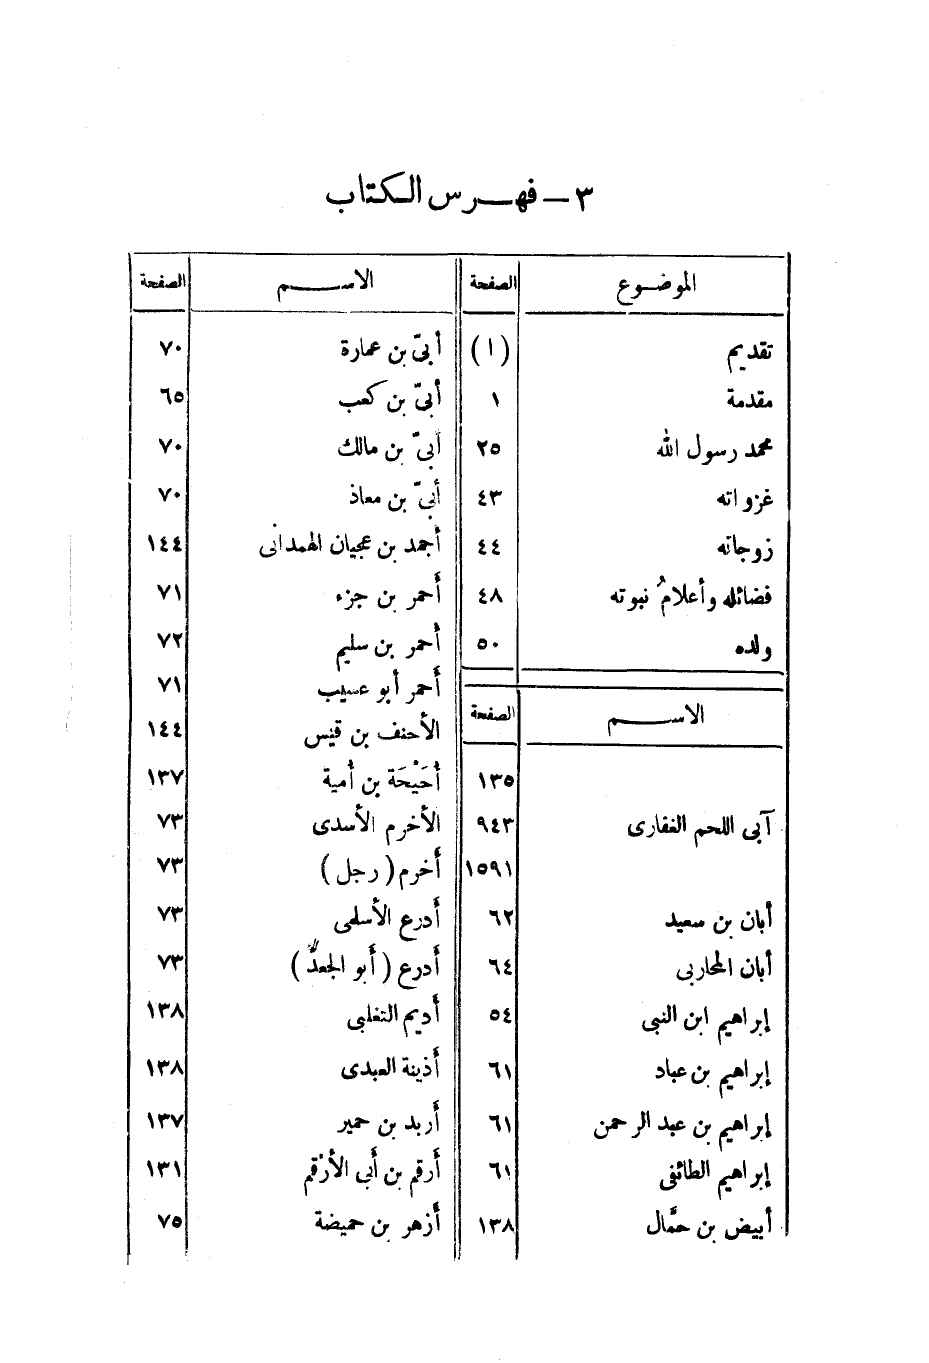 ٣ – فهرس الكتاب
الموضوع الصفحة
تقديم (١)
مقدمة ١
محمد رسول الله ٢٥
غزواته ٤٣
زوجاته ٤٤
فضائله وأعلامُ نبوته ٤٨
ولده ٥٠
الاسم الصفحة
١٣٥
آبى اللحم الغفارى ٩٤٣
١٥٩١
أبان بن سعيد ٦٢
أبان المحاربى ٦٤
إبراهيم ابن النبى ٥٤
إبراهيم بن عباد ٦١
إبراهيم بن عبد الرحمن ٦١
إبراهيم الطائفى ٦١
أبيض بن حمَّال ١٣٨
الاسم الصفحة
أبىّ بن عمارة ٧٠
أبىّ بن كعب ٦٥
أبىّ بن مالك ٧٠
أبىّ بن معاذ ٧٠
أحمد بن عجيان الهمدانى ١٤٤
أحمر بن جزء ٧١
أحمر بن سليم ٧٢
أحمر أبو عسيب ٧١
الأحنف بن قيس ١٤٤
أُحَيْحَة بن أمية ١٣٧
الأخرم الأسدى ٧٣
أخرم ( رجل ) ٧٣
أدرع الأسلمى ٧٣
أدرع ( أبو الجعد ) ٧٣
أديم التغلبى ١٣٨
أذينة العبدى ١٣٨
أربد بن حمير ١٣٧
أرقم بن أبى الأرْقم ١٣١
أزهر بن حميضة ٧٥